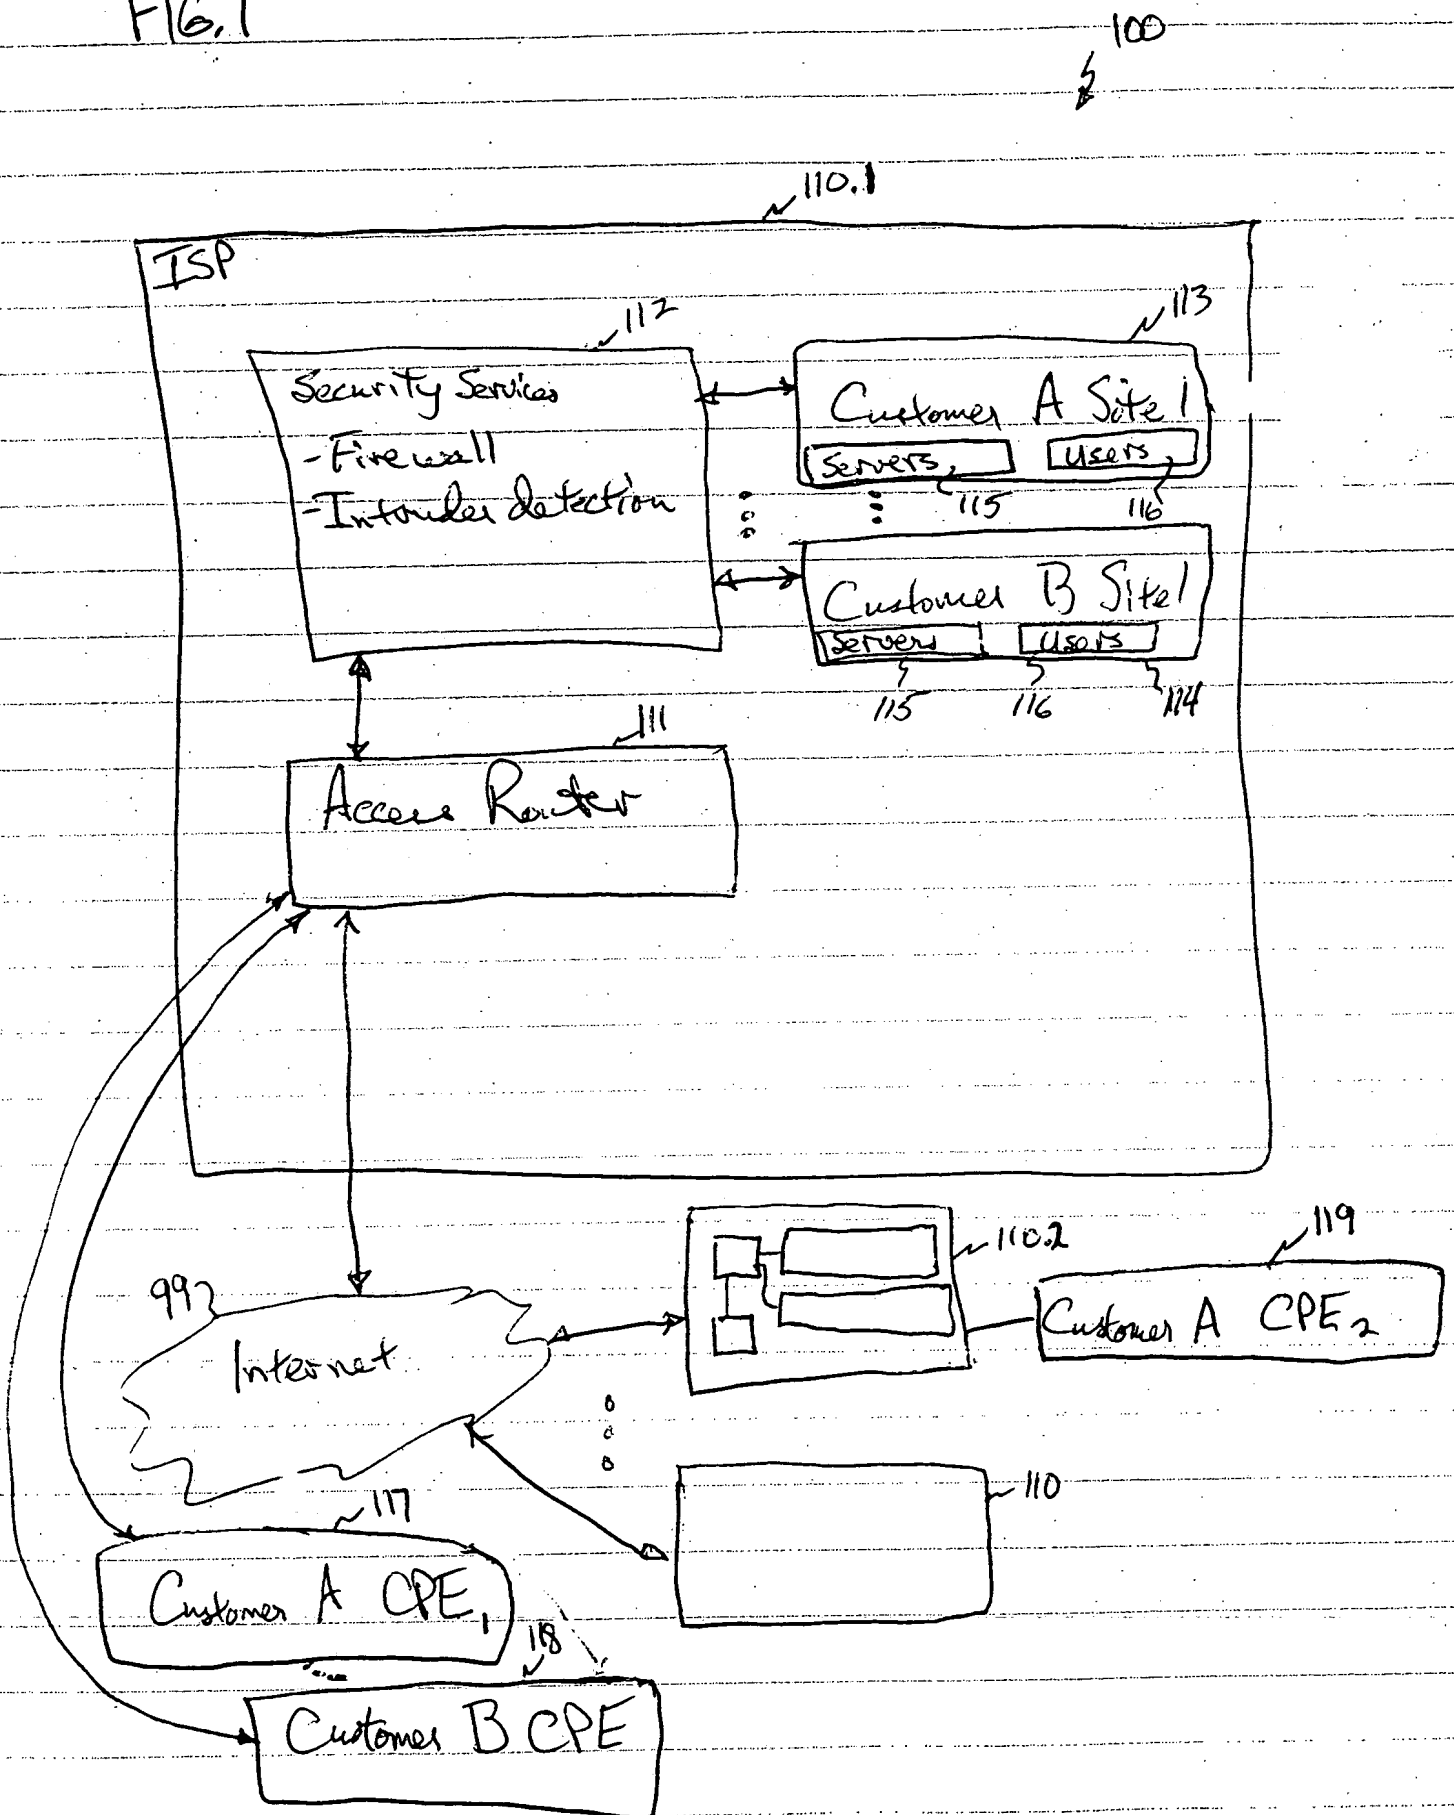 FIG. 1
100
110.1
ISP
112
113
Security Services
-Firewall
-Intruder detection
Customer A Site 1
Servers
Users
115
116
Customer B Site 1
Servers
Users
115
116
114
111
Access Router
99
Internet
110.2
119
Customer A CPE2
110
117
Customer A CPE1
118
Customer B CPE